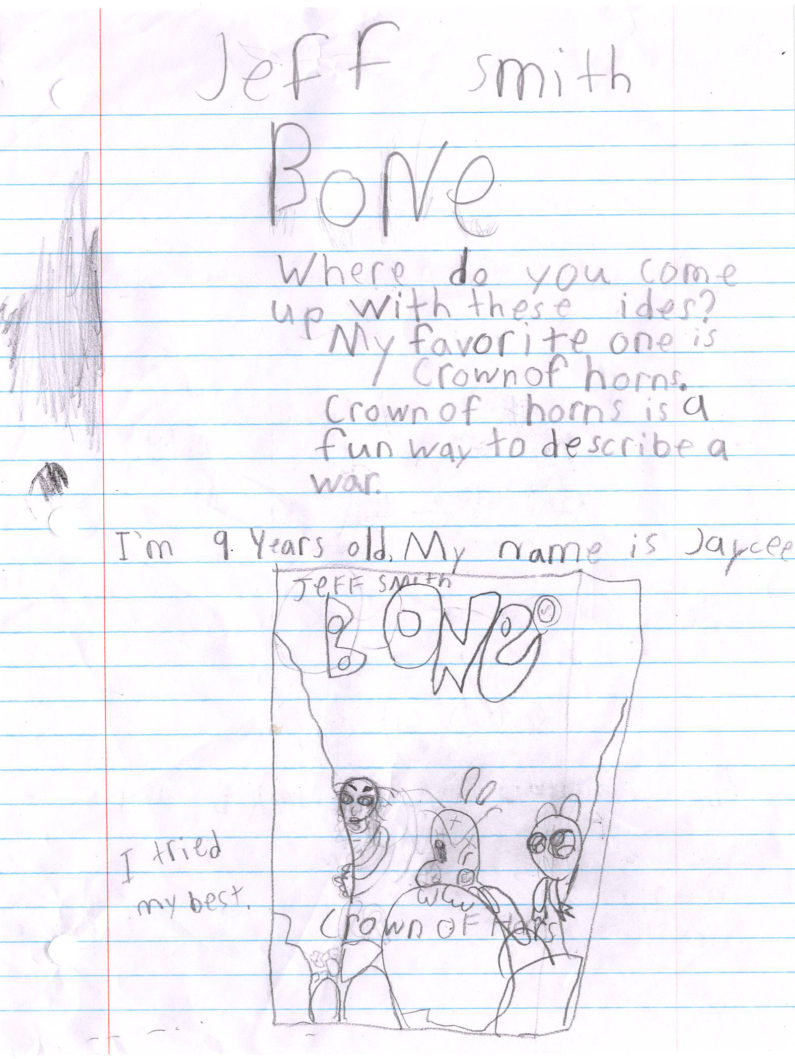 Jeff smith
BoNe
Where do you come
up with these ides?
My favorite one is
Crown of horns.
Crown of horns is a
fun way to describe a
war.
I'm 9. Years old. My name is Jaycee
JeFF SMith
BONe
I tried
my best.
Crown oF Hors